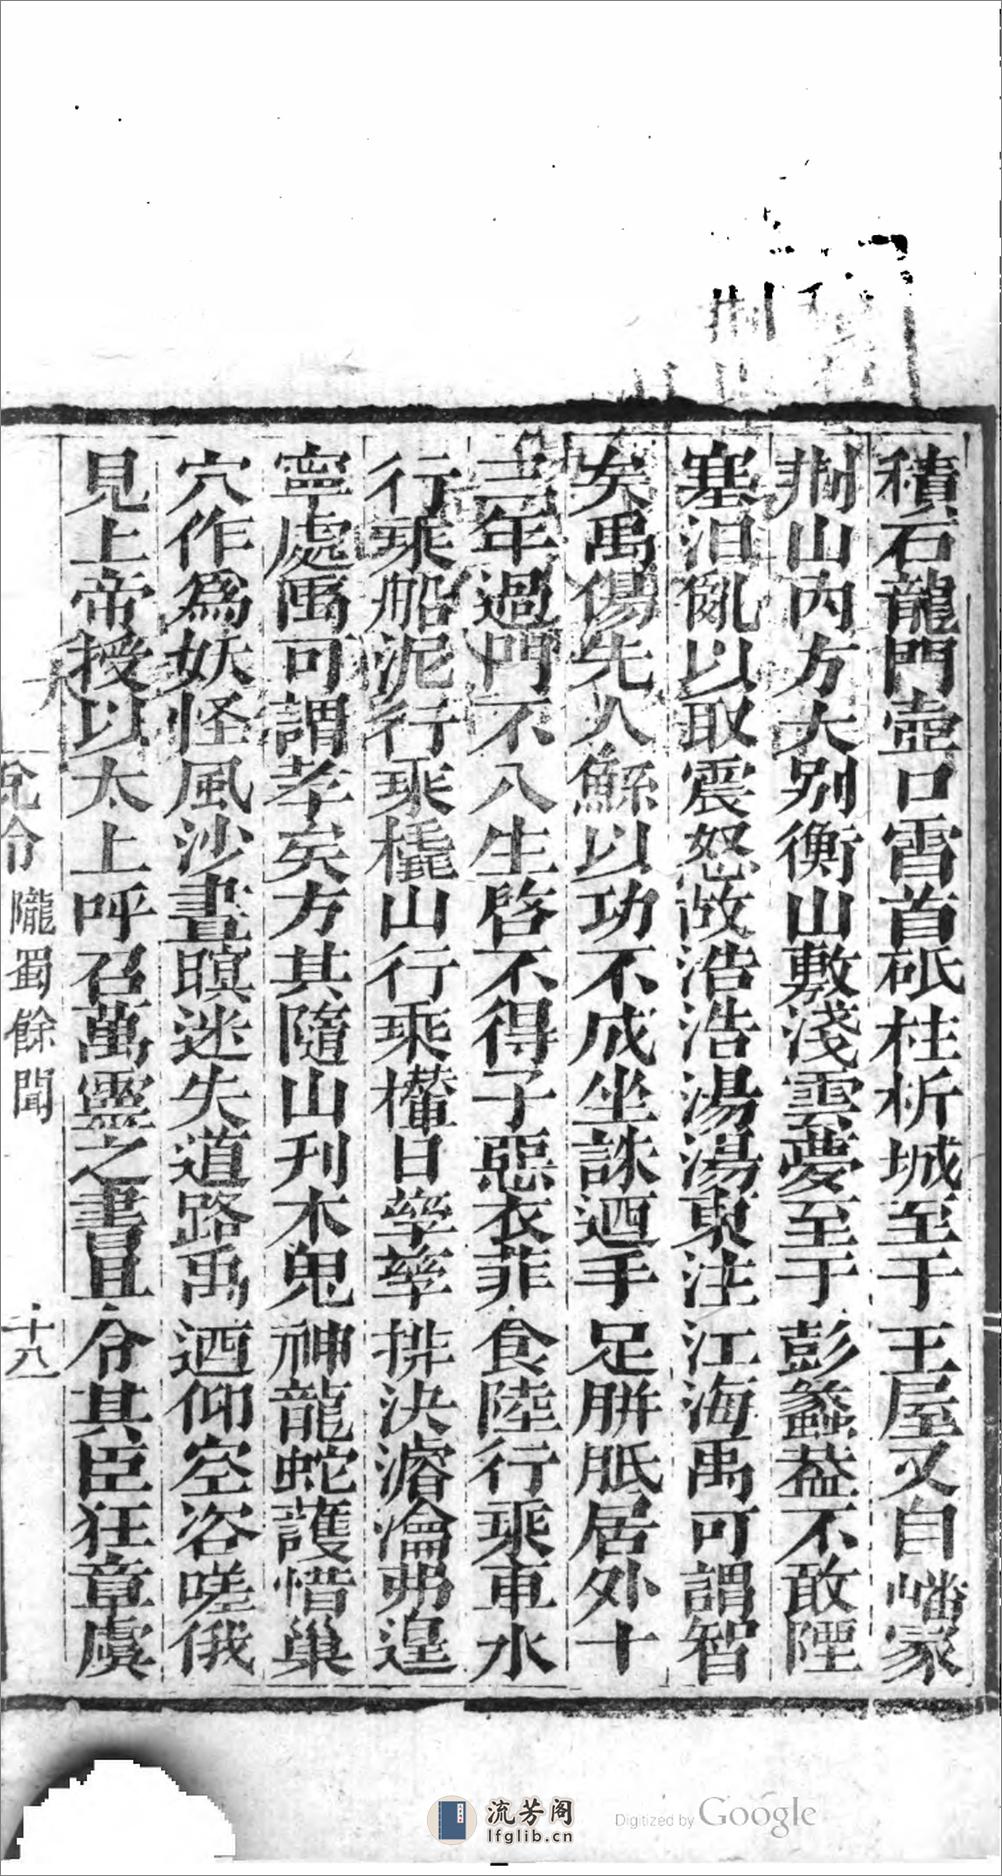 積石龍門壺口雷首砥柱析城至于王屋又自嶓冢
荆山内方大别衡山敷淺雲夢至于彭蠡葢不敢陻
塞汨亂以取震怒故浩浩湯湯東注江海禹可謂智
矣禹傷先人鯀以功不成坐誅迺手足胼胝居外十
三年過門不入生啓不得子惡衣菲食陸行乘車水
行乘船泥行乘橇山行乘欙日孳孳排決濬瀹弗遑
寧處禹可謂孝矣方其隨山刋木鬼神龍蛇護惜巢
穴作爲妖怪風沙晝暝迷失道路禹迺仰空咨嗟俄
見上帝授以太上呼召萬靈之書且令其臣狂章虞
隴蜀餘聞
十八
流芳阁
lfglib.cn
Digitized by Google